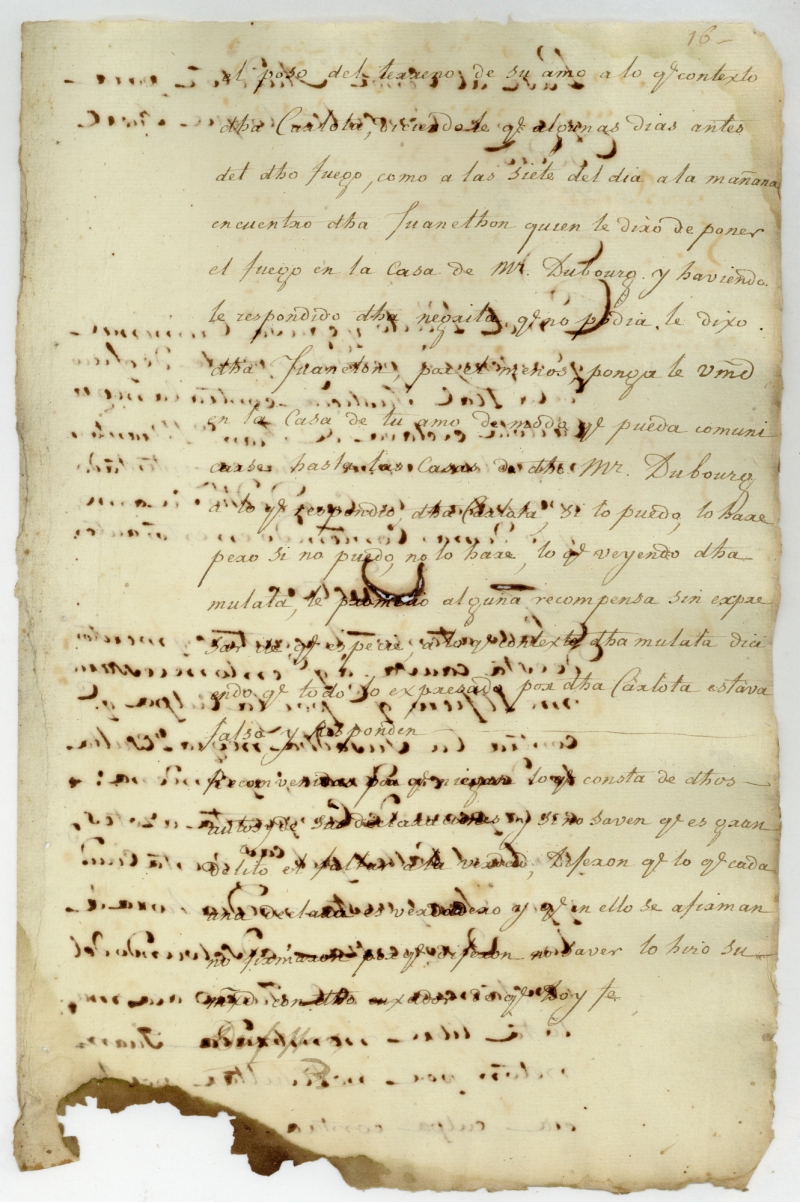 16-
el poso del terreno de su amo a lo qe contexto
dha Carlota, diciendole qe algunas dias antes
del dho fuego, como a las siete del dia a la mañana
encuentro dha Juanethon quien le dixo de poner
el fuego en la Casa de Mr. Dubourg. y haviendo
le respondido dha negrita qe no podia. le dixo.
dha Juaneton, por el menos, ponga le Vmd
en la Casa de tu amo de modo qe pueda comuni
carse hasta las Casas de dho Mr. Dubourg
a lo qe respondio, dha Carlota, si lo puedo, lo hare
pero si no puedo, no lo hare, lo qe veyendo dha
mulata, le prometio alguna recompensa sin expre
sar de qe especie, a lo qe contexto dha mulata dici
endo qe todo lo expresado por dha Carlota estava
falso y responden
Reconvenidas por qe niegan lo qe consta de dhos
autos y de sus declaraciones y si no saven qe es gran
delito el faltar a la verdad, Dijeron qe lo qe cada
una declara es verdadero y qe en ello se afirman
no firmaron por qe dijeron no saver lo hizo su
mrd con dho de qe Doy fe